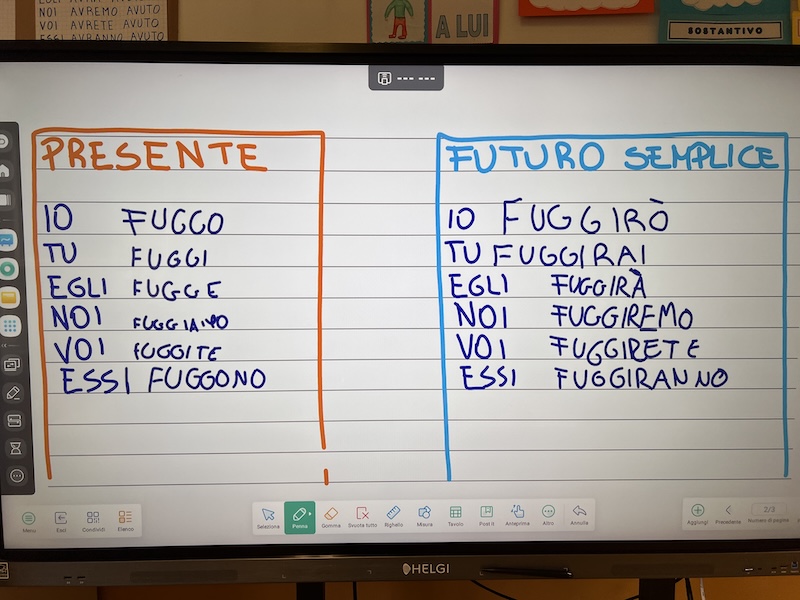 NOI AVREMO AVUTO
VOI AVRETE AVUTO
ESSI AVRANNO AVUTO
A LUI
SOSTANTIVO
PRESENTE
IO FUGGO
TU FUGGI
EGLI FUGGE
NOI FUGGIAMO
VOI FUGGITE
ESSI FUGGONO
FUTURO SEMPLICE
IO FUGGIRÒ
TU FUGGIRAI
EGLI FUGGIRÀ
NOI FUGGIREMO
VOI FUGGIRETE
ESSI FUGGIRANNO
Menu Esci Condividi Elenco
Seleziona Penna Gomma Svuota tutto Righello Misura Tavolo Post it Anteprima Altro Annulla
Aggiungi Precedente 2/3 Numero di pagine
HELGI